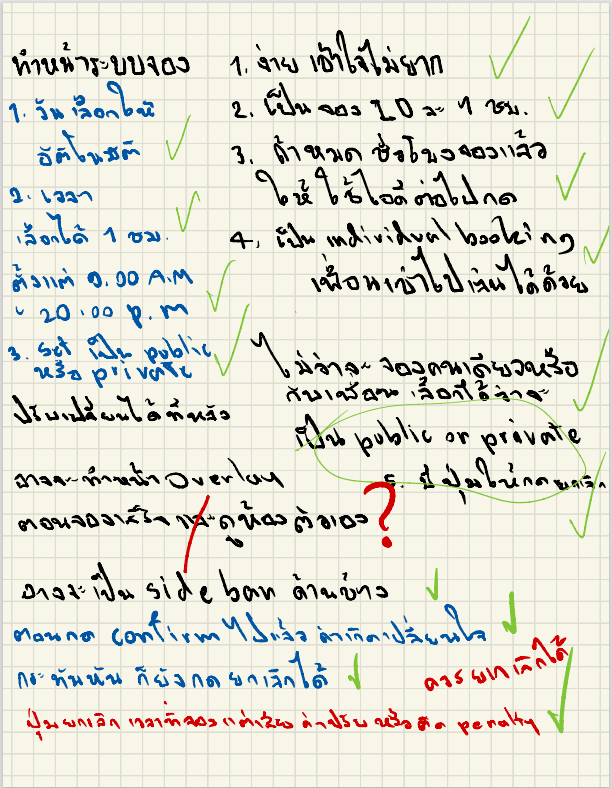 ทำหน้าระบบจอง
1. วันเลือกให้
อัตโนมัติ
2. เวลา
เลือกได้ 1 ชม.
ตั้งแต่ 9.00 A.M
20.00 p.m
3. set เป็น public
หรือ private
ปรับเปลี่ยนได้ทีหลัง
1. ง่าย เข้าใจไม่ยาก
2. เป็นจอง ID ละ 1 ชม.
3. ถ้าหมด ชั่วโมงจองแล้ว
ให้ ใช้ไอดีต่อไปกด
4. เป็น individual booking
เพื่อนเข้าไปเล่นได้ด้วย
ไม่ว่าจะ จองคนเดียวหรือ
กับเพื่อน เลือกได้ว่าจะ
เป็น public or private
5. มีปุ่มให้กด ยกเลิก
อาจจะทำหน้า Overlay
ตอนจองเสร็จ และดูห้องตัวเอง ?
อาจจะเป็น side bar ด้านข้าง
ตอนกด confirm ไปแล้ว ถ้าเกิดเปลี่ยนใจ
กะทันหัน ก็ยังกดยกเลิกได้
ควรยกเลิกได้
ปุ่มยกเลิก เวลาที่จองแต่เสียค่าปรับ หรือติด penalty